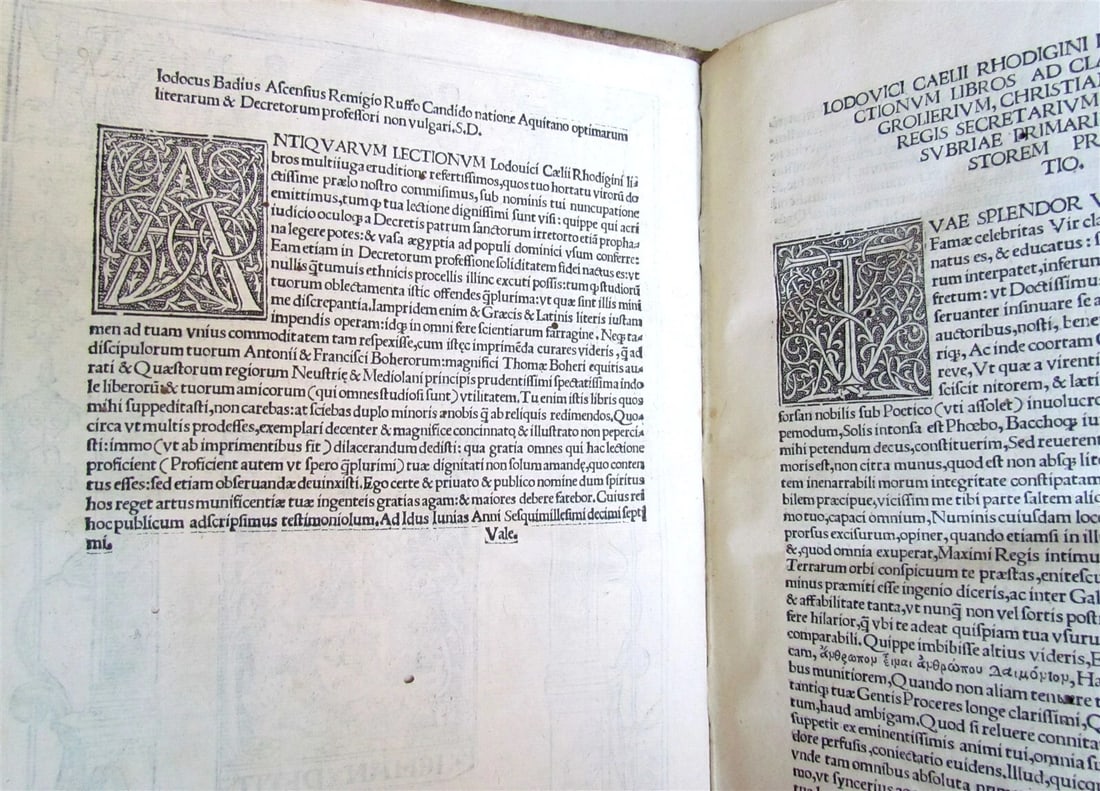 Iodocus Badius Ascensius Remigio Ruffo Candido natione Aquitano optimarum
literarum & Decretorum professori non vulgari. S.D.
ANTIQVARVM LECTIONVM Lodouici Cælii Rhodigini li-
bros multiiuga eruditione refertissimos, quos tuo hortatu virorū do
ctissime prælo nostro commisimus, sub nominis tui nuncupatione
emittimus, tum q̃ tua lectione dignissimi sunt visi: quippe qui acri
iudicio oculoq; a Decretis patrum sanctorum irretorto etiā propha-
na legere potes: & vasa ægyptia ad populi dominici vsum conferre:
Eam etiam in Decretorum professione soliditatem fidei nactus es: vt
nullis q̃tumuis ethnicis procellis illinc excuti possis: tum q; studiorū
tuorum oblectamenta istic offendes q̃plurima: vt quæ sint illis mini
me discrepantia. Iampridem enim & Græcis & Latinis literis iustam
impendis operam: idq; in omni fere scientiarum farragine. Neq; ta-
men ad tuam vnius commoditatem tam respexisse, cum istęc imprimēda curares videris, q̃ ad
discipulorum tuorum Antonii & Francisci Boherorum: magnifici Thomæ Boheri equitis au-
rati & Quæstorum regiorum Neustrię & Mediolani principis prudentissimi spectatissima indo
le liberorū & tuorum amicorum (qui omnes studiosi sunt) vtilitatem. Tu enim istis libris quos
mihi suppeditasti, non carebas: at sciebas duplo minoris a nobis q̃ ab reliquis redimendos. Quo-
circa vt multis prodesses, exemplari decenter & magnifice concinnato & illustrato non peperci-
sti: immo (vt ab imprimentibus fit) dilacerandum dedisti: qua gratia omnes qui hac lectione
proficient (Proficient autem vt spero q̃plurimi) tuæ dignitati non solum amandę, quo conten
tus esses: sed etiam obseruandæ deuinxisti. Ego certe & priuato & publico nomine dum spiritus
hos reget artus munificentiæ tuæ ingenteis gratias agam: & maiores debere fatebor. Cuius rei
hoc publicum adscripsimus testimoniolum. Ad Idus Iunias Anni Sesquimillesimi decimi septi
mi. Vale.
LODOVICI CAELII RHODIGINI
CTIONVM LIBROS AD CLA
GROLIERIVM, CHRISTIA
REGIS SECRETARIVM
SVBRIAE PRIMARI
STOREM PR
TIO.
VAE SPLENDOR
Famæ celebritas Vir cla
natus es, & educatus:
rum interpatet, inferun
fretum: vt Doctissimu
seruanter insinuare se a
auctoribus, nosti, bene
riq;, Ac inde coortam
reve, Vt quæ a virenti
sciscit nitorem, & læti
forsan nobilis sub Poetico (vti assolet) inuolucro
pemodum, Solis intonsa est Phœbo, Bacchoq; iu
mihi petendum decus, constituerim, Sed reueren
moris est, non citra munus, quod est non absq; lit
tem inenarrabili morum integritate constipatam
bilem præcipue, vicissim me tibi parte saltem alic
mo tuo, capaci omnium, Numinis cuiusdam loc
prorsus excisurum, opiner, quando etiamsi in ill
&, quod omnia exuperat, Maximi Regis intimu
Terrarum orbi conspicuum te præstas, enitescu
minus præmiti esse ingenio diceris, ac inter Gal
& affabilitate tanta, vt nunq̃ non vel sortis posti
fere hilarior, q̃ vbi te adeat quispiam tua vsuru
comparabili. Quippe imbibisse altius videris, E
cam, ἄνθρωπον εἶναι ἀνθρώπου δαιμόνιον, Ha
bus munitiorem, Quando non aliam tenuere t
tantiq; tuæ Gentis Proceres longe clarissimi, Q
tum, haud ambigam. Quod si reluere connita
suppetit ex eminentissimis animi tui, omnia su
dore perfusis, coniectatio euidens. Illud, quicq
vnde tam omnibus absoluta
mo, vt syncerius